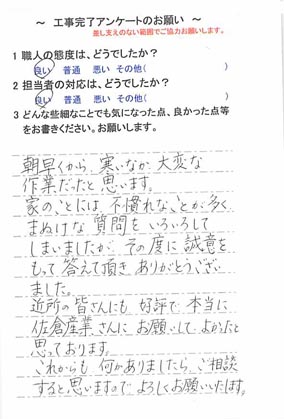 ～ 工事完了アンケートのお願い ～
差し支えのない範囲でご協力お願いします。
1 職人の態度は、どうでしたか？
良い 普通 悪い その他( )
2 担当者の対応は、どうでしたか？
良い 普通 悪い その他( )
3 どんな些細なことでも気になった点、良かった点等
をお書きください。お願いします。
朝早くから、寒いなか大変な
作業だったと思います。
家のことには不慣れなことが多く
まぬけな質問をいろいろして
しまいましたが、その度に誠意を
もって答えて頂きありがとうござい
ました。
近所の皆さんにも好評で本当に
佐倉産業さんにお願いしてよかったと
思っております。
これからも何かありましたらご相談
すると思いますのでよろしくお願いいたします。